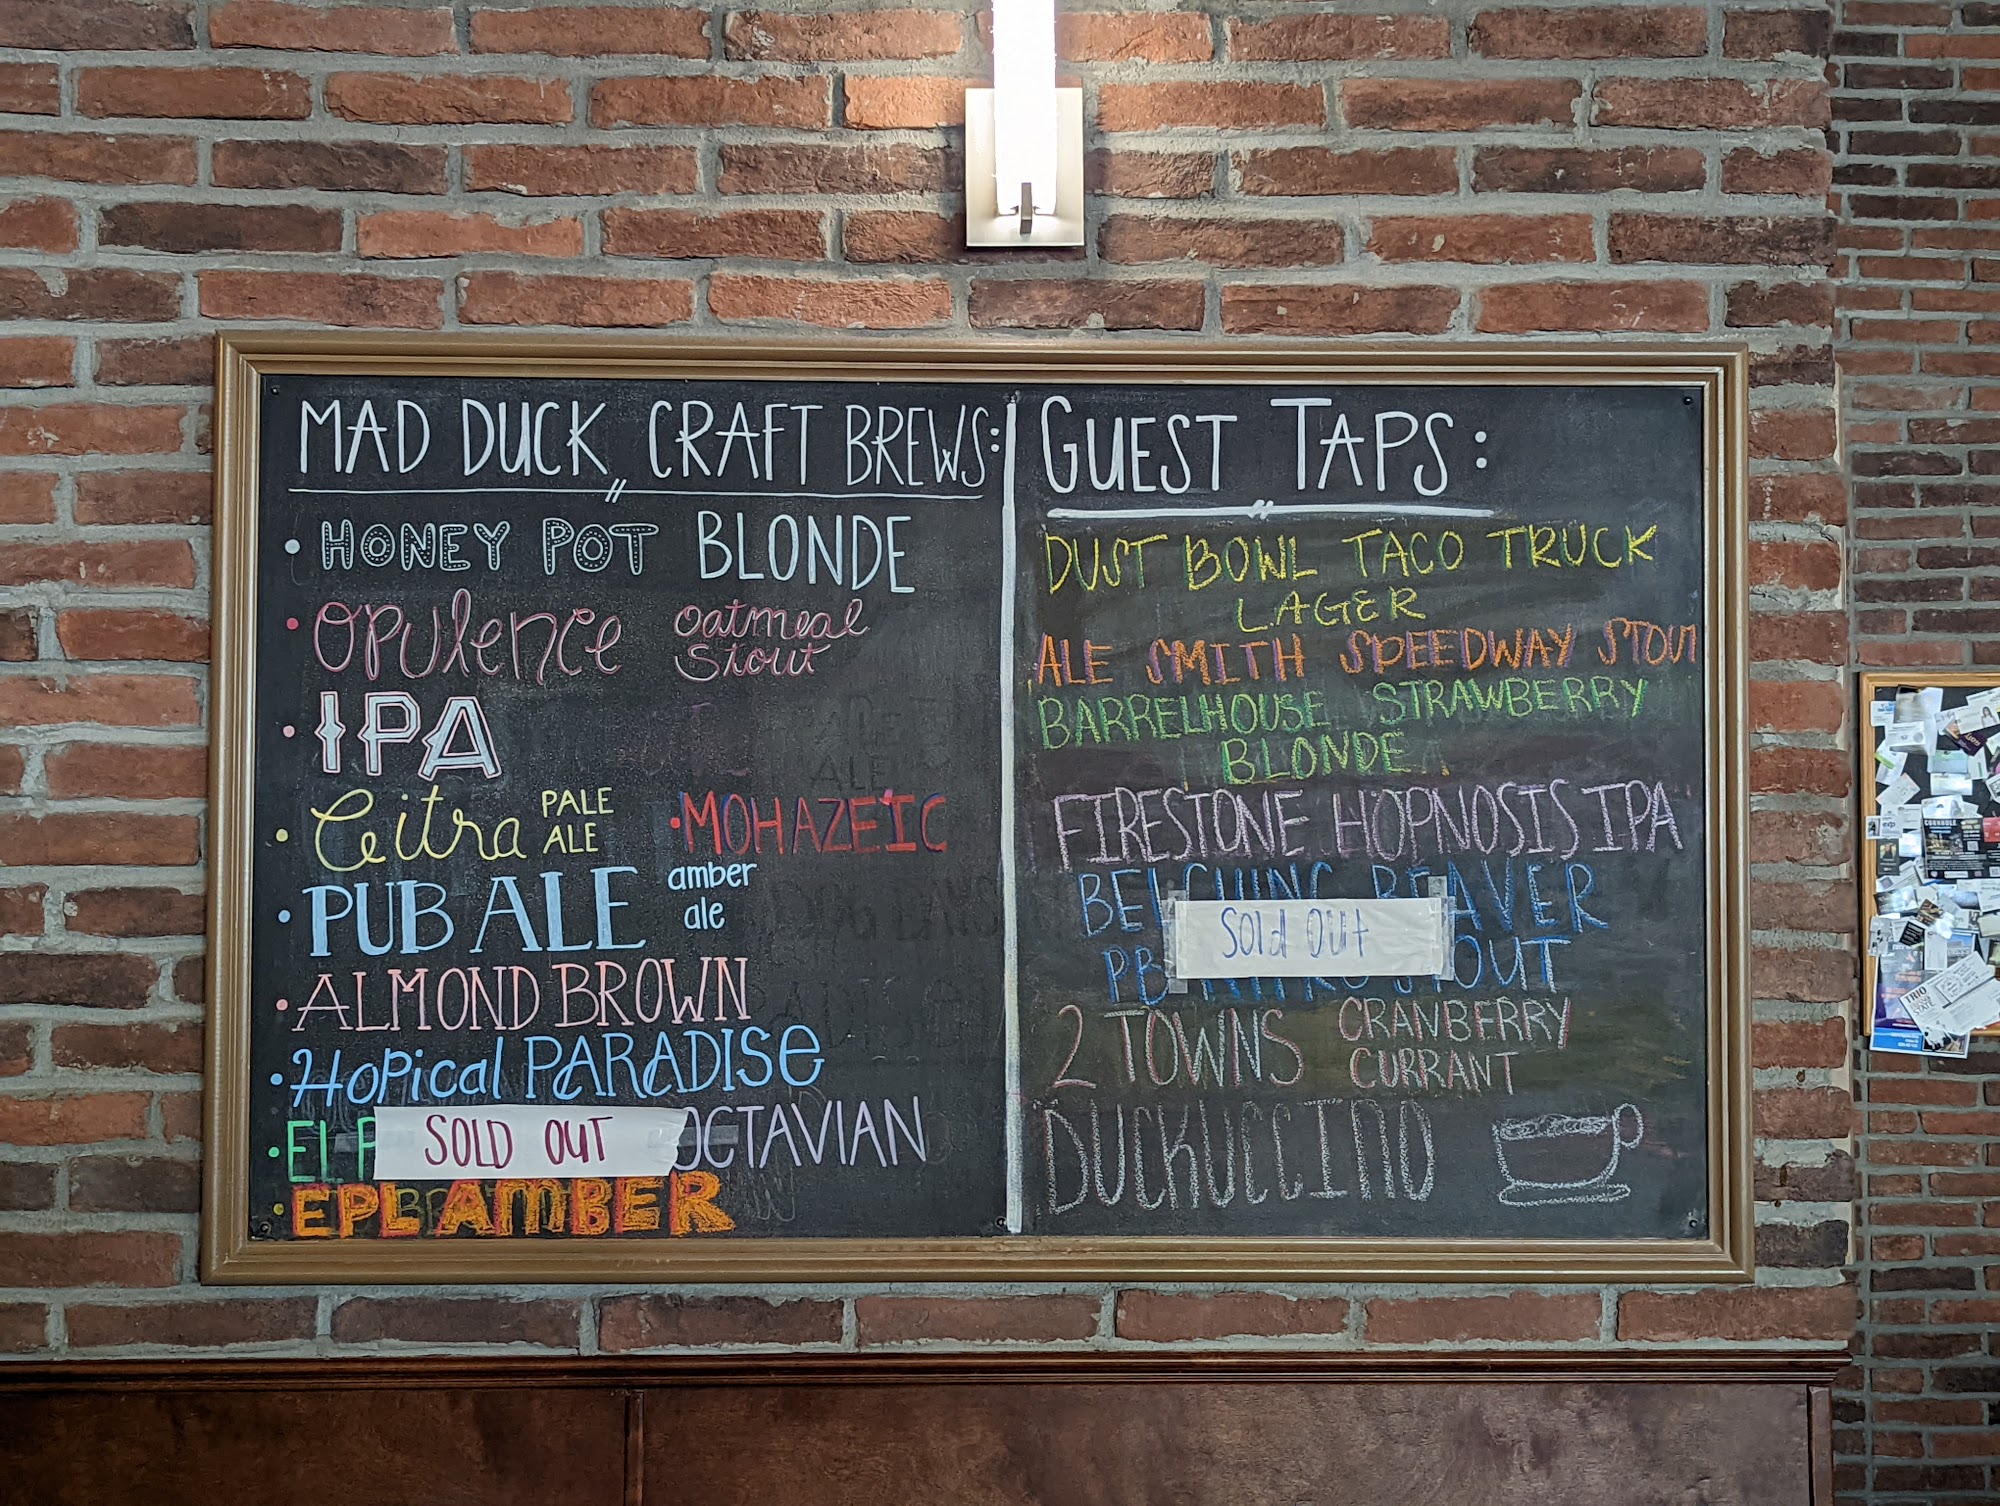 MAD DUCK CRAFT BREWS:
HONEY POT BLONDE
OPULENCE oatmeal
stout
IPA
Citra PALE
ALE
MOHAZEIC
PUB ALE amber
ale
ALMOND BROWN
HOPical PARADISe
EL P SOLD OUT OCTAVIAN
EPL AMBER
GUEST TAPS:
DUST BOWL TACO TRUCK
LAGER
ALE SMITH SPEEDWAY STOUT
BARRELHOUSE STRAWBERRY
BLONDE
FIRESTONE HOPNOSIS IPA
BELCHING BEAVER
Sold Out
PB NITRO STOUT
2 TOWNS CRANBERRY
CURRANT
DUCKUCCINO
TRIO